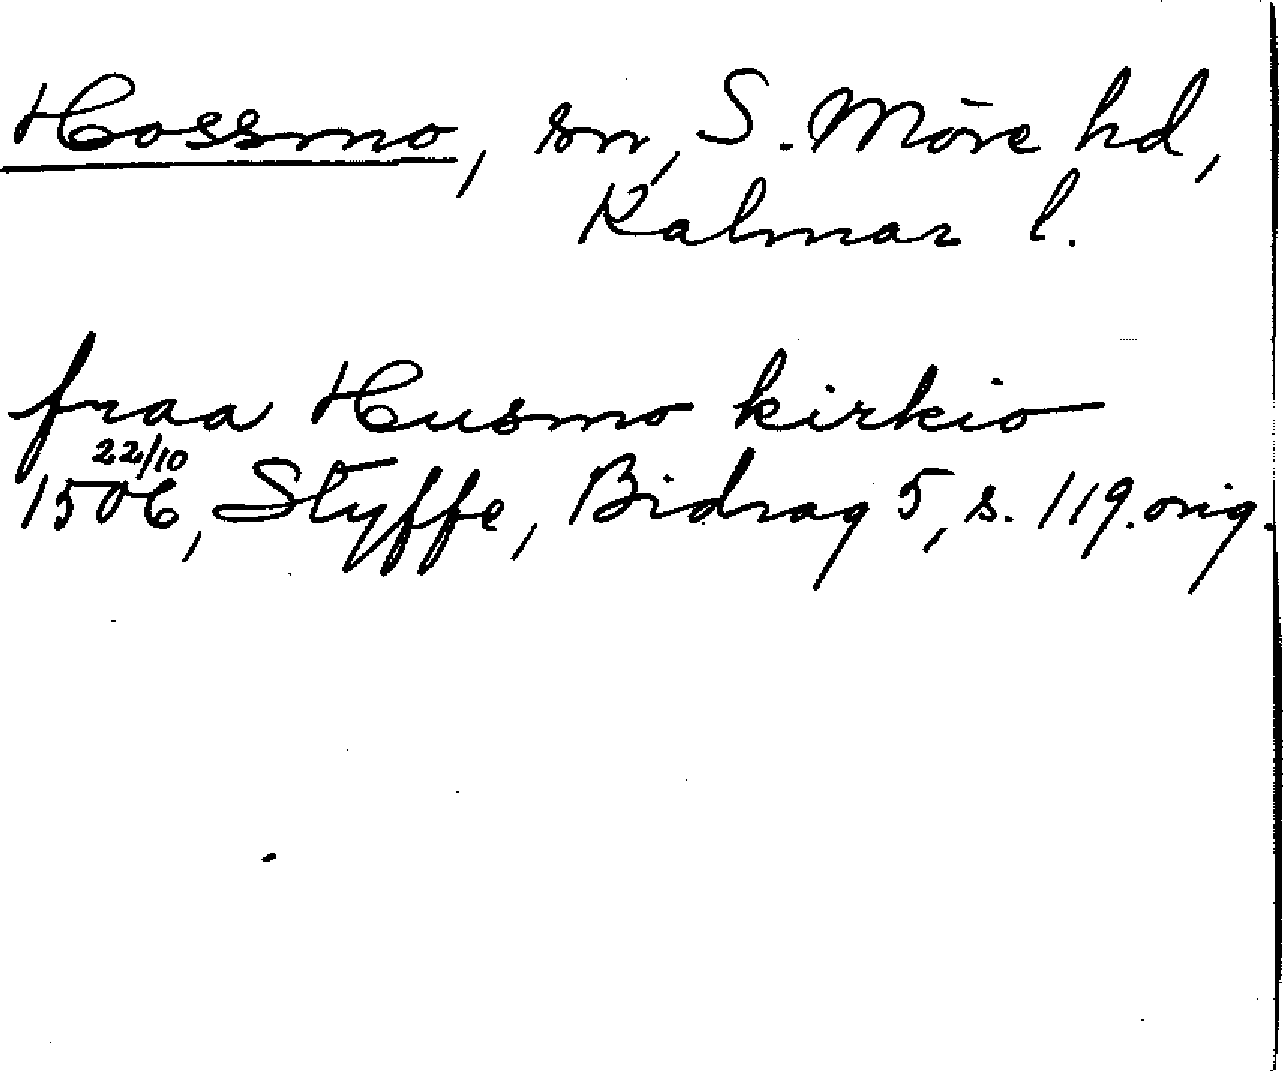 Hossmo, sn, S. Möre hd,
Kalmar l.
fraa Husmo kirkio
22/10
1506, Styffe, Bidrag 5, s. 119. orig.